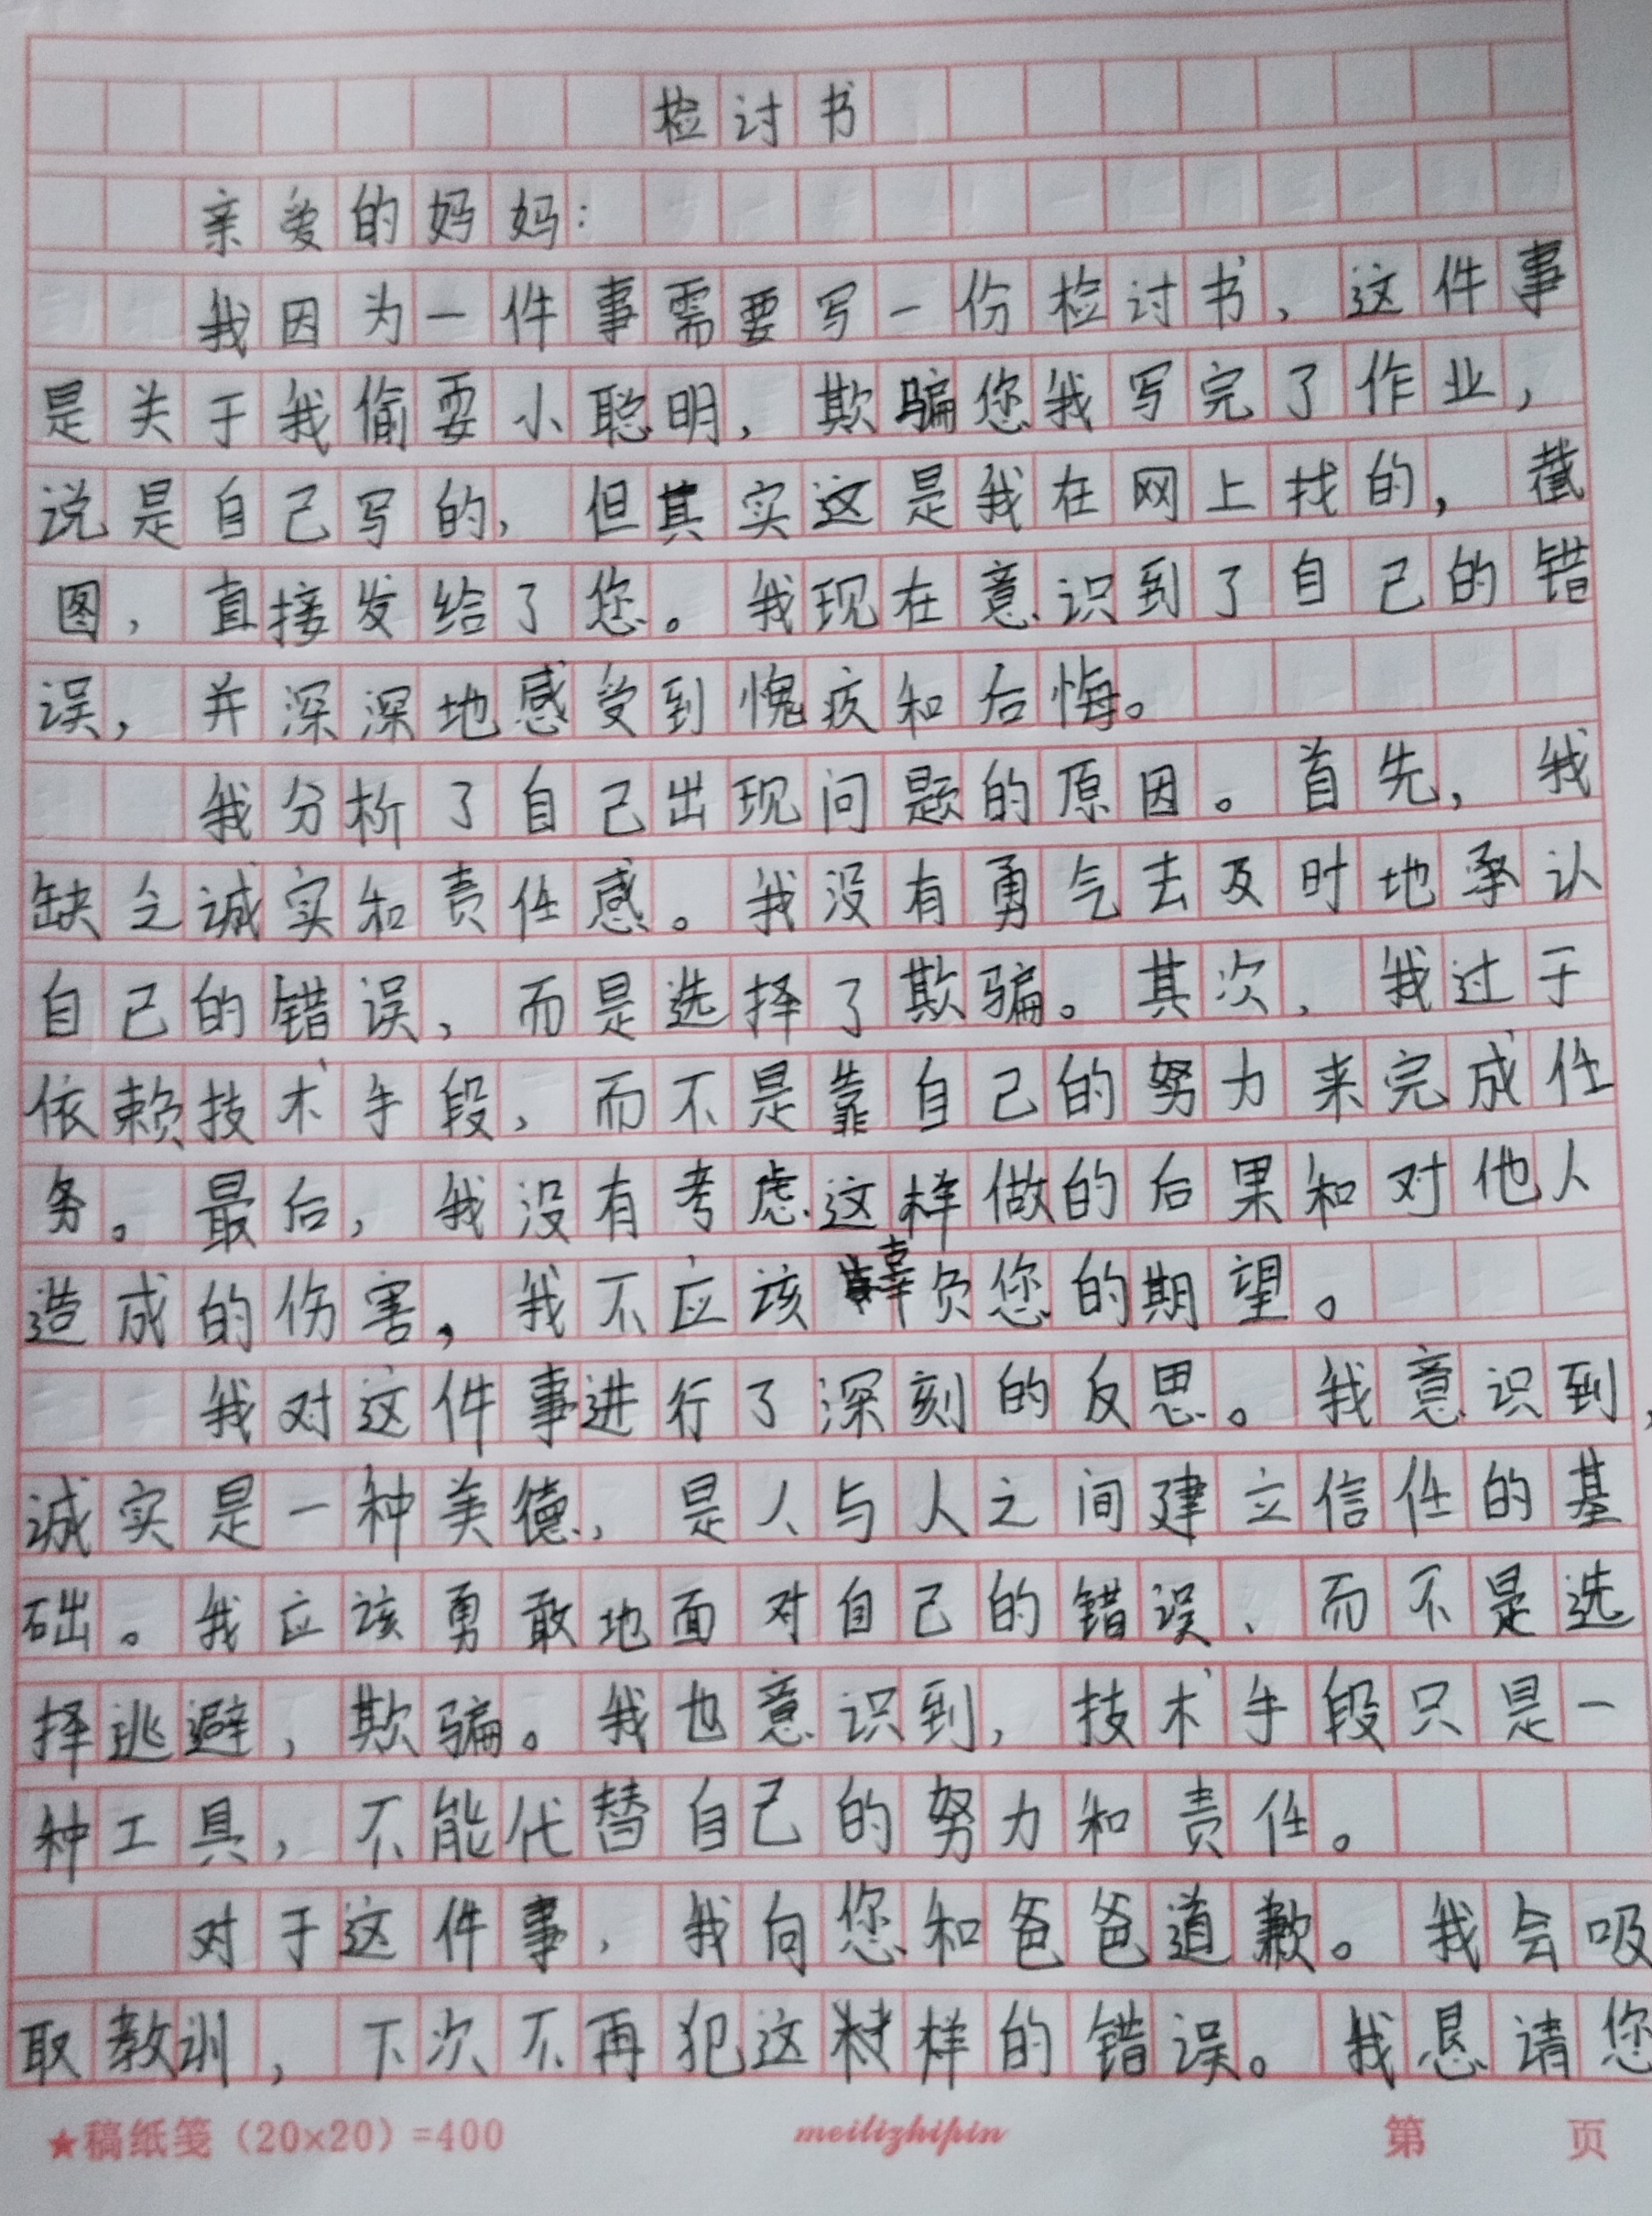 检讨书
亲爱的妈妈：
我因为一件事需要写一份检讨书，这件事
是关于我偷耍小聪明，欺骗您我写完了作业，
说是自己写的，但其实这是我在网上找的，截
图，直接发给了您。我现在意识到了自己的错
误，并深深地感受到愧疚和后悔。
我分析了自己出现问题的原因。首先，我
缺乏诚实和责任感。我没有勇气去及时地承认
自己的错误，而是选择了欺骗。其次，我过于
依赖技术手段，而不是靠自己的努力来完成任
务。最后，我没有考虑这样做的后果和对他人
造成的伤害，我不应该负您的期望。
我对这件事进行了深刻的反思。我意识到，
诚实是一种美德，是人与人之间建立信任的基
础。我应该勇敢地面对自己的错误、而不是选
择逃避，欺骗。我也意识到，技术手段只是一
种工具，不能代替自己的努力和责任。
对于这件事，我向您和爸爸道歉。我会吸
取教训，下次不再犯这样的错误。我恳请您
★稿纸笺（20×20）=400 meilizhipin 第 页